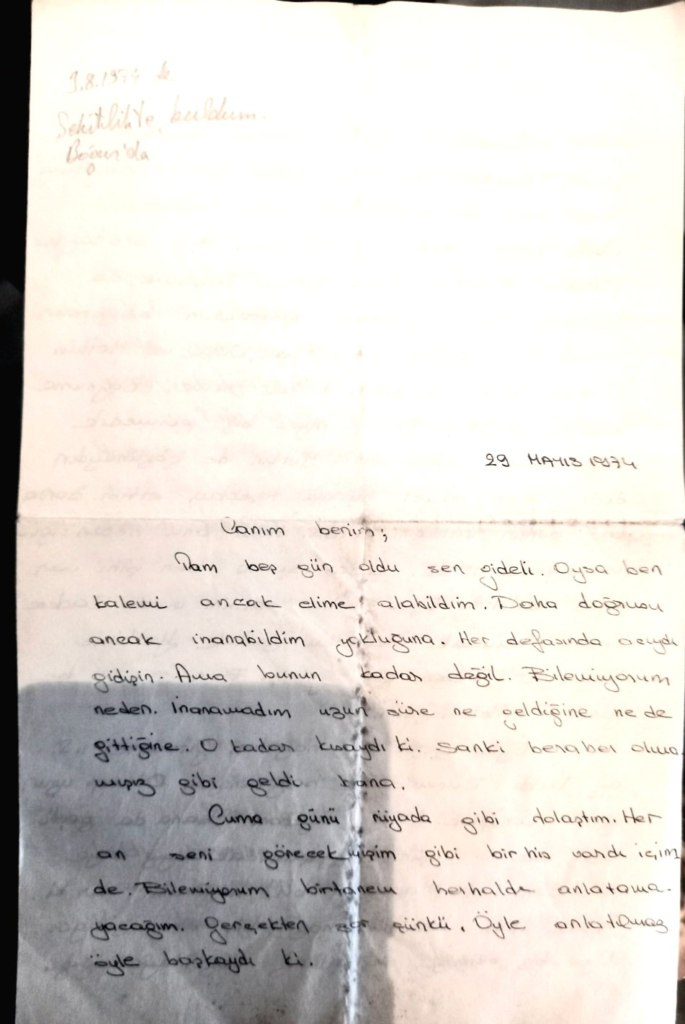 9.8.1974 de
Şehitlikte, buldum.
Boğaz'da
29 MAYIS 1974
Canım benim;
Tam beş gün oldu sen gideli. Oysa ben
kalemi ancak elime alabildim. Daha doğrusu
ancak inanabildim yokluğuna. Her defasında acıydı
gidişin. Ama bunun kadar değil. Bilemiyorum
neden. İnanamadım uzun süre ne geldiğine ne de
gittiğine. O kadar kısaydı ki. Sanki beraber olma
mışız gibi geldi bana.
Cuma günü rüyada gibi dolaştım. Her
an seni görecekmişim gibi bir his vardı içim
de. Bilemiyorum birtanem herhalde anlatama-
yacağım. Gerçekten zor çünkü. Öyle anlatılmaz
öyle başkaydı ki.